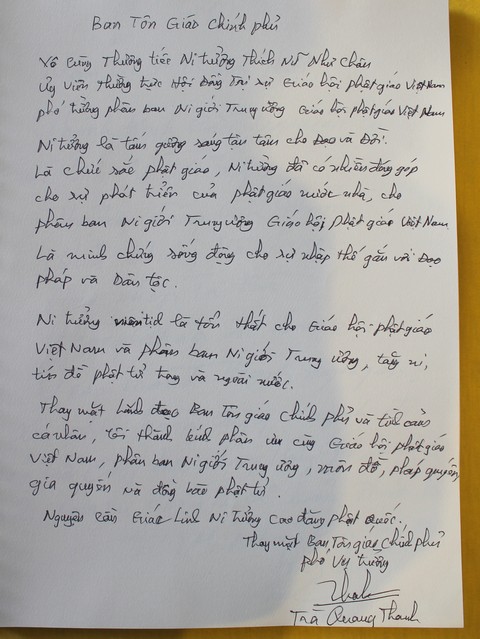 Ban Tôn Giáo Chính phủ
Vô Cùng Thương tiếc Ni trưởng Thích Nữ Như Châu
Ủy Viên thường trực Hội Đồng Trị sự Giáo hội phật giáo Việt Nam
phó trưởng phân ban Ni giới Trung ương Giáo hội phật giáo Việt Nam
Ni trưởng là tấm gương sáng tận tâm cho Đạo và Đời.
Là chức sắc phật giáo, Ni trưởng đã có nhiều đóng góp
cho sự phát triển của phật giáo nước nhà, cho
phân ban Ni giới Trung ương Giáo hội phật giáo Việt Nam
Là minh chứng sống động cho sự nhập thế gắn với Đạo
pháp và Dân tộc.
Ni trưởng viên tịch là tổn thất cho Giáo hội phật giáo
Việt Nam và phân ban Ni giới Trung ương, tăng ni,
tín đồ phật tử trong và ngoài nước.
Thay mặt Lãnh đạo Ban Tôn giáo chính phủ và tình cảm
cá nhân, tôi thành kính phân ưu cùng Giáo hội phật giáo
Việt Nam, phân ban Ni giới Trung ương, môn đồ, pháp quyến,
gia quyến và đồng bào phật tử.
Nguyện cầu Giác Linh Ni trưởng Cao đăng phật Quốc.
Thay mặt Ban Tôn giáo Chính phủ
phó Vụ trưởng
Trà Quang Thanh